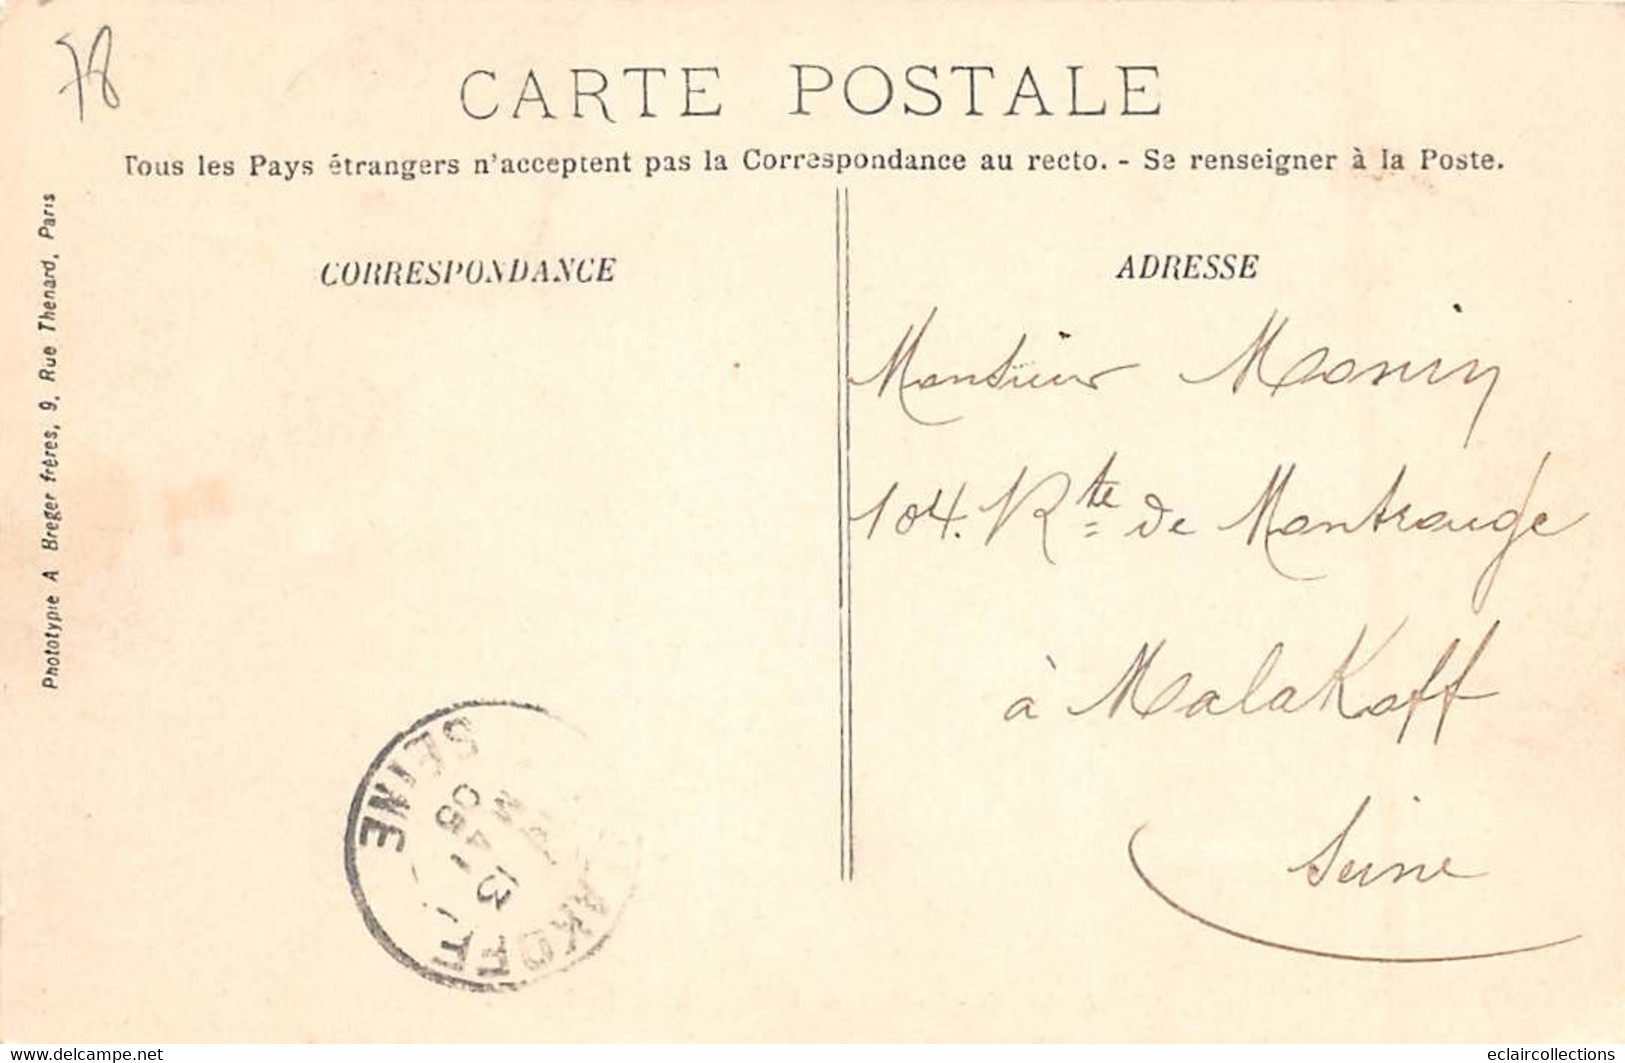 78
CARTE POSTALE
Tous les Pays étrangers n'acceptent pas la Correspondance au recto. - Se renseigner à la Poste.
Phototypie A Breger frères, 9, Rue Thenard, Paris
CORRESPONDANCE
ADRESSE
Monsieur
104. Rte de Montrouge
à Malakoff
Seine
MALAKOFF
SEINE
13
05
www.delcampe.net
eclaircollections